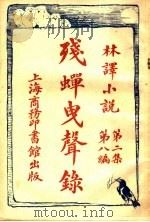 林譯小説
第二集
第八編
殘蟬曳聲錄
上海商務印書館出版